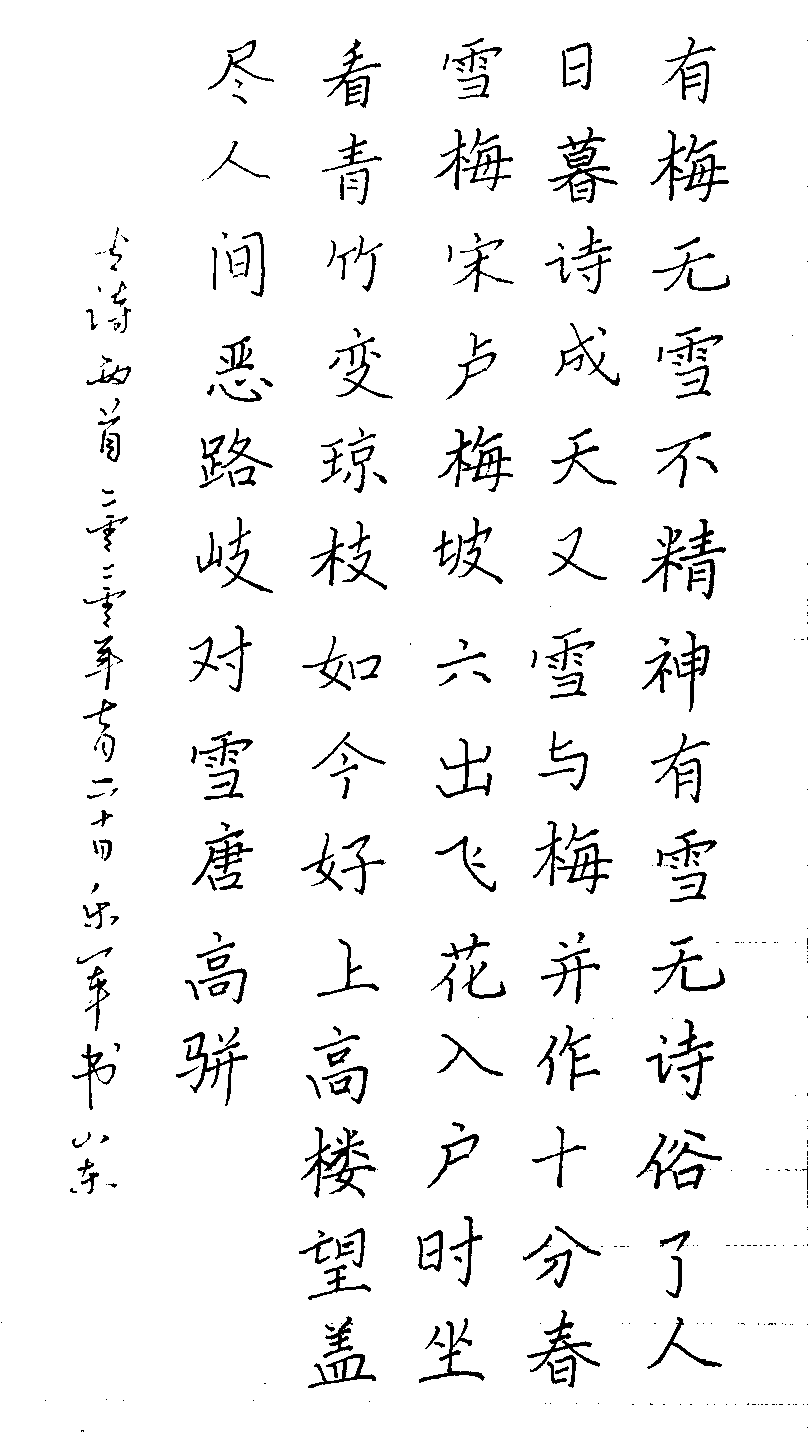 有梅无雪不精神有雪无诗俗了人
日暮诗成天又雪与梅并作十分春
雪梅宋卢梅坡六出飞花入户时坐
看青竹变琼枝如今好上高楼望盖
尽人间恶路岐对雪唐高骈
古诗两首二零二零年十一月二十日乐军书山东